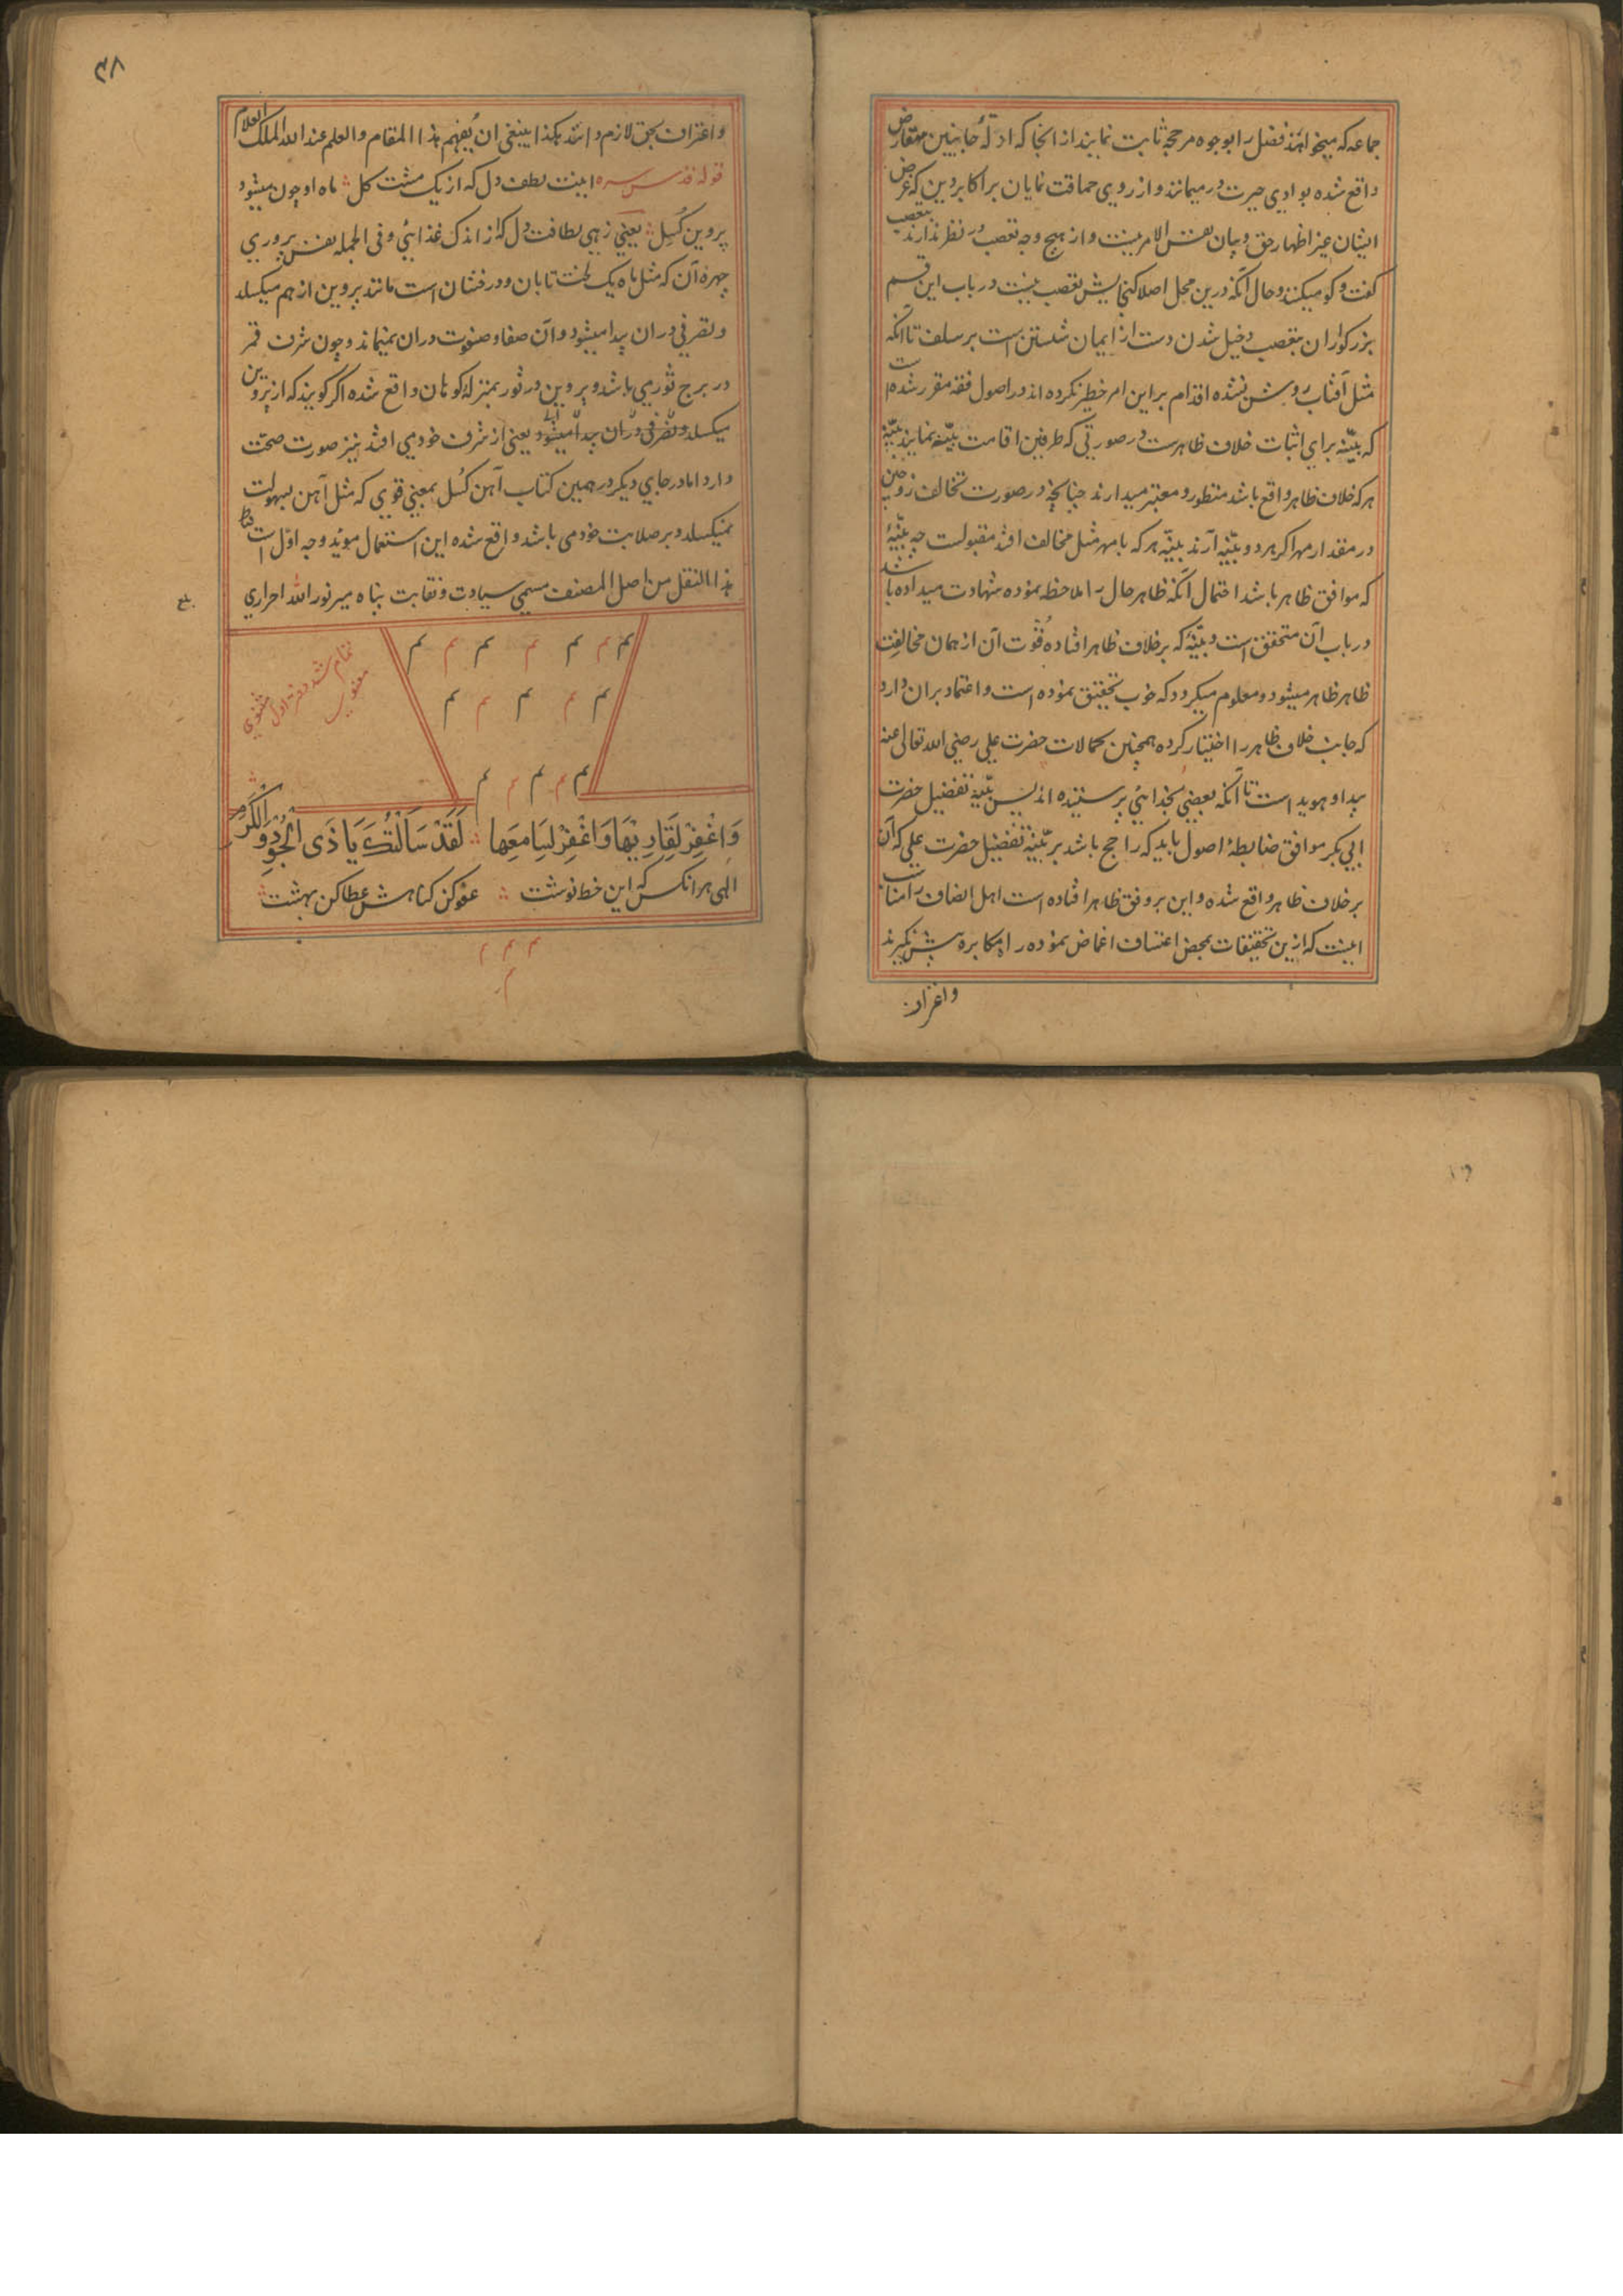 جماعه که میخواهند فضل را بوجوه مرجحه ثابت نمایند از انجا که ادلهٔ جانبین متعارض
واقع شده بوادی حیرت درمیمانند و از روی حماقت نمایان بر اکابر دین که غرض
ایشان غیر اظهار حق و بیان نفس الامر نیست و از هیچ وجه تعصب در نظر ندارند تعصب
گفت و گو میکنند و حال آنکه درین محل اصلا گنجایش تعصب نیست در باب این قسم
بزرگواران بتعصب دخیل شدن دست از ایمان شستن است بر سلف تا آنکه
مثل آفتاب روشن نشده اقدام بر این امر خطیر نکرده اند در اصول فقه مقرر شده است
که بیّنه برای اثبات خلاف ظاهرست در صورتی که طرفین اقامت بیّنه نمایند بیّنهٔ
هر که خلاف ظاهر واقع باشد منظور و معتبر میدارند چنانچه در صورت تخالف زوجین
در مقدار مهر اکر هر دو بیّنه آرند بیّنه هر که با مهر مثل مخالف افتد مقبولست چه بیّنهٔ
که موافق ظاهر باشد احتمال آنکه ظاهر حال را ملاحظه نموده شهادت میداده باشند
در باب آن متحقق است و بیّنهٔ که بر خلاف ظاهر افتاده قوت آن از همان مخالفت
ظاهر ظاهر میشود و معلوم میکردد که خوب تحقیق نموده است و اعتماد بران دارد
که جانب خلاف ظاهر را اختیار کرده همچنین کمالات حضرت علی رضی الله تعالی عنه
پیدا و هویداست تا آنکه بعضی بخدایی پرستیده اند پس بیّنهٔ تفضیل حضرت
ابی بکر موافق ضابطهٔ اصول باید که راجح باشد بر بیّنهٔ تفضیل حضرت علی که آن
بر خلاف ظاهر واقع شده و این بر وفق ظاهر افتاده است اهل انصاف را مناسب
اینست که ازین تحقیقات بمحض اعتساف اغماض نموده راه مکابره پیش نگیرند
واعتراف
۴۸
واعتراف بحق لازم دانند هکذا ینبغی ان یُفهم هذا المقام والعلم عند الله الملک العلام
قوله قدس سره اینت لطف دل که از یک مشت کل ماه او چون میشود
پروین کسل یعنی زهی لطافت دل که از اندک غذایی و فی الجمله نفس پروری
چهره آن که مثل ماه یک لخت تابان و درفشان است مانند پروین از هم میکسلد
و تصرفی دران پیدا میشود و آن صفا و صفوت دران نمیماند و چون شرف قمر
در برج ثور می باشد و پروین در ثور بمنزلهٔ کوهان واقع شده اکر کویند که از پروین
میکسلد و تفرقی دران پیدا میشود یعنی از شرف خود می افتد نیز صورت صحت
دارد اما در جای دیکر در همین کتاب آهن کُسل بمعنی قوی که مثل آهن بسهولت
نمیکسلد و بر صلابت خود می باشد واقع شده این استعمال مؤید وجه اوّل است فقط
هذا النقل من اصل المصنف مسمی سیادت و نقابت پناه میر نورالله احراری
بلغ
تمام شد دفتر اول مثنوی معنوی
م م م م م م م
م م م م م
م م م م م
وَاغْفِرْ لِقَارِیْهَا وَاغْفِرْ لِسَامَعِها لَقَدْ سَاَلْتُکَ یَا ذَی الْجُوْدِ وَالْکَرَمِ
الهی هرانکس که این خط نوشت عفو کن کناهش عطا کن بهشت
م م م
م